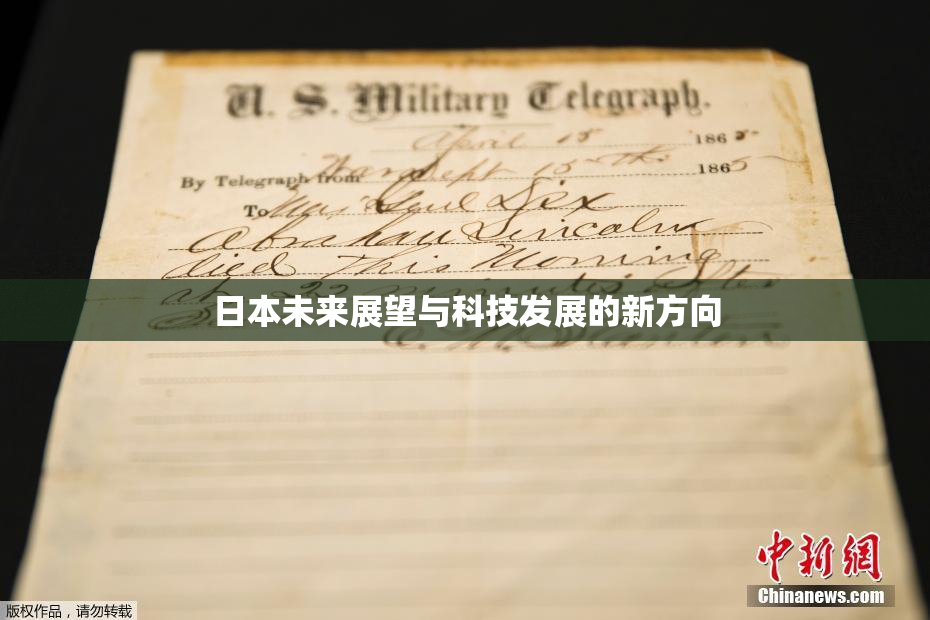 U. S. Military Telegraph.
April 15 1865
By Telegraph from War Dept 15th 1865
To Maj Genl Dix
Abraham Lincoln
died This Morning
at 22 minutes after
日本未来展望与科技发展的新方向
E. M. Stanton
中新網
Chinanews.com
版权作品，请勿转载